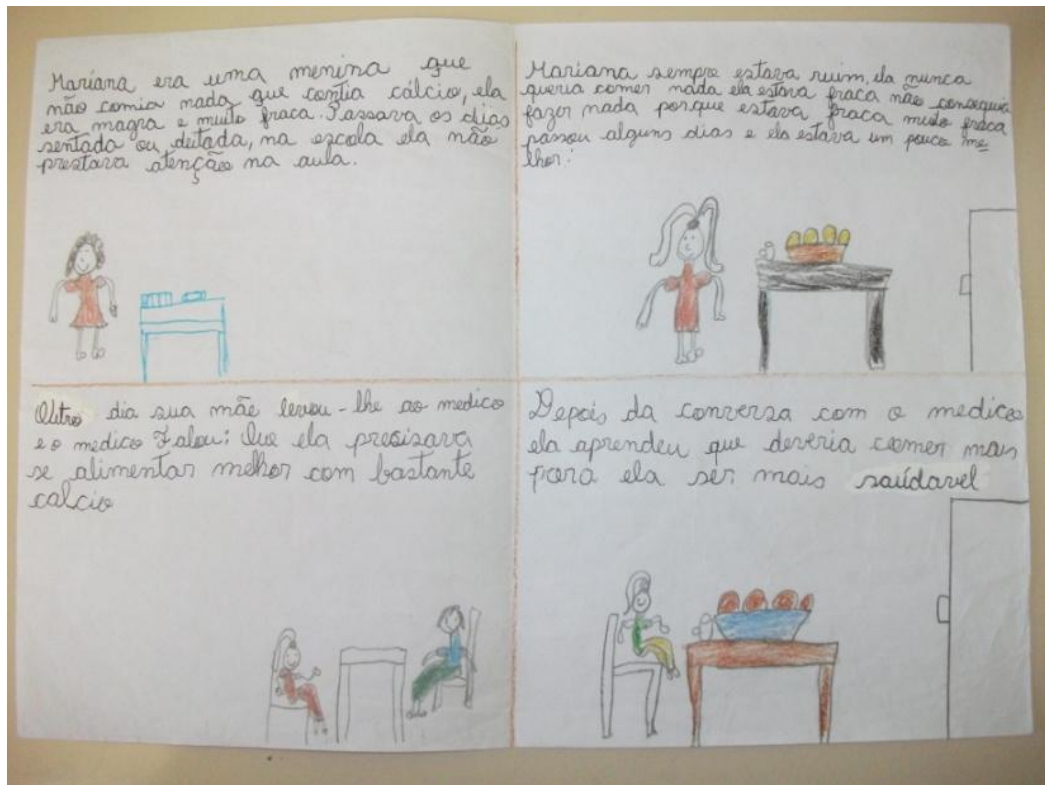 Mariana era uma menina que
não comia nada que contia cálcio, ela
era magra e muito fraca. Passava os dias
sentada ou deitada, na escola ela não
prestava atenção na aula.
Mariana sempre estava ruim, ela nunca
queria comer nada ela estava fraca não conseguia
fazer nada porque estava fraca muito fraca
passou alguns dias e ela estava um pouco me
lhor.
Outro dia sua mãe levou-lhe ao medico
e o medico Falou: Que ela precisava
se alimentar melhor com bastante
calcio
Depois da conversa com o medico
ela aprendeu que deveria comer mais
para ela ser mais saúdavel